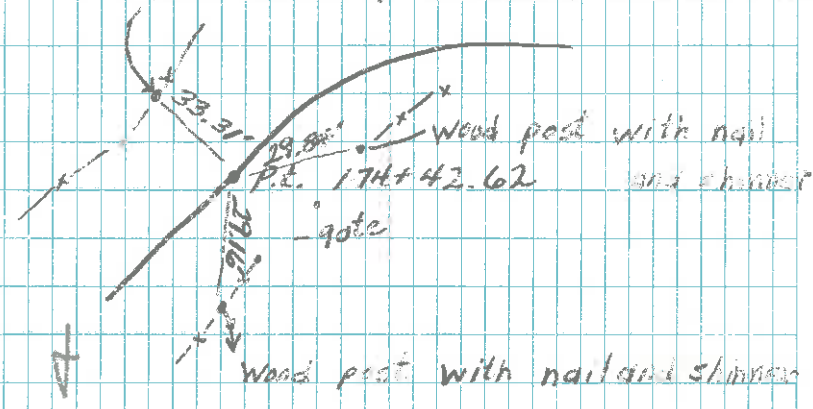 33.31'
29.84'
Wood post with nail
and shinner
P.t. 174+42.62
29.16'
gate
Wood post with nail and shinner